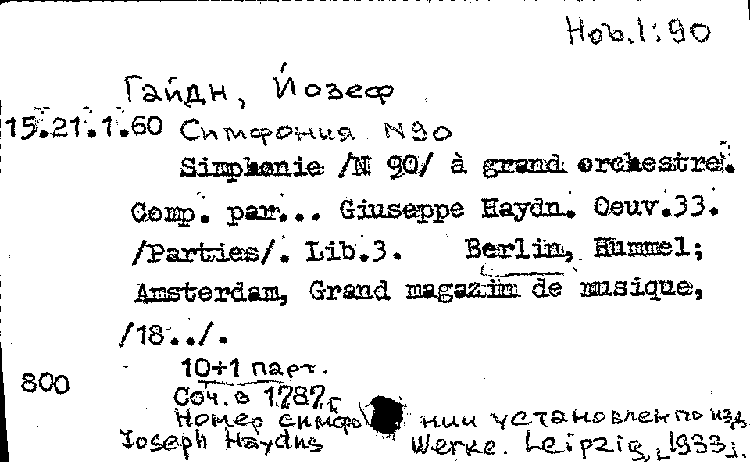 Hob.I:90
Гайдн, Йозеф
15.21.1.60 Симфония N90
Simphonie /N 90/ à grand orchestre.
Comp. par... Giuseppe Haydn. Oeuv.33.
/Parties/. Lib.3. Berlin, Hummel;
Amsterdam, Grand magazim de musique,
/18../.
10+1 парт.
800
Соч. в 1787г
Номер симфо нии установлен по изд.
Joseph Haydns Werke. Leipzig, 1933.